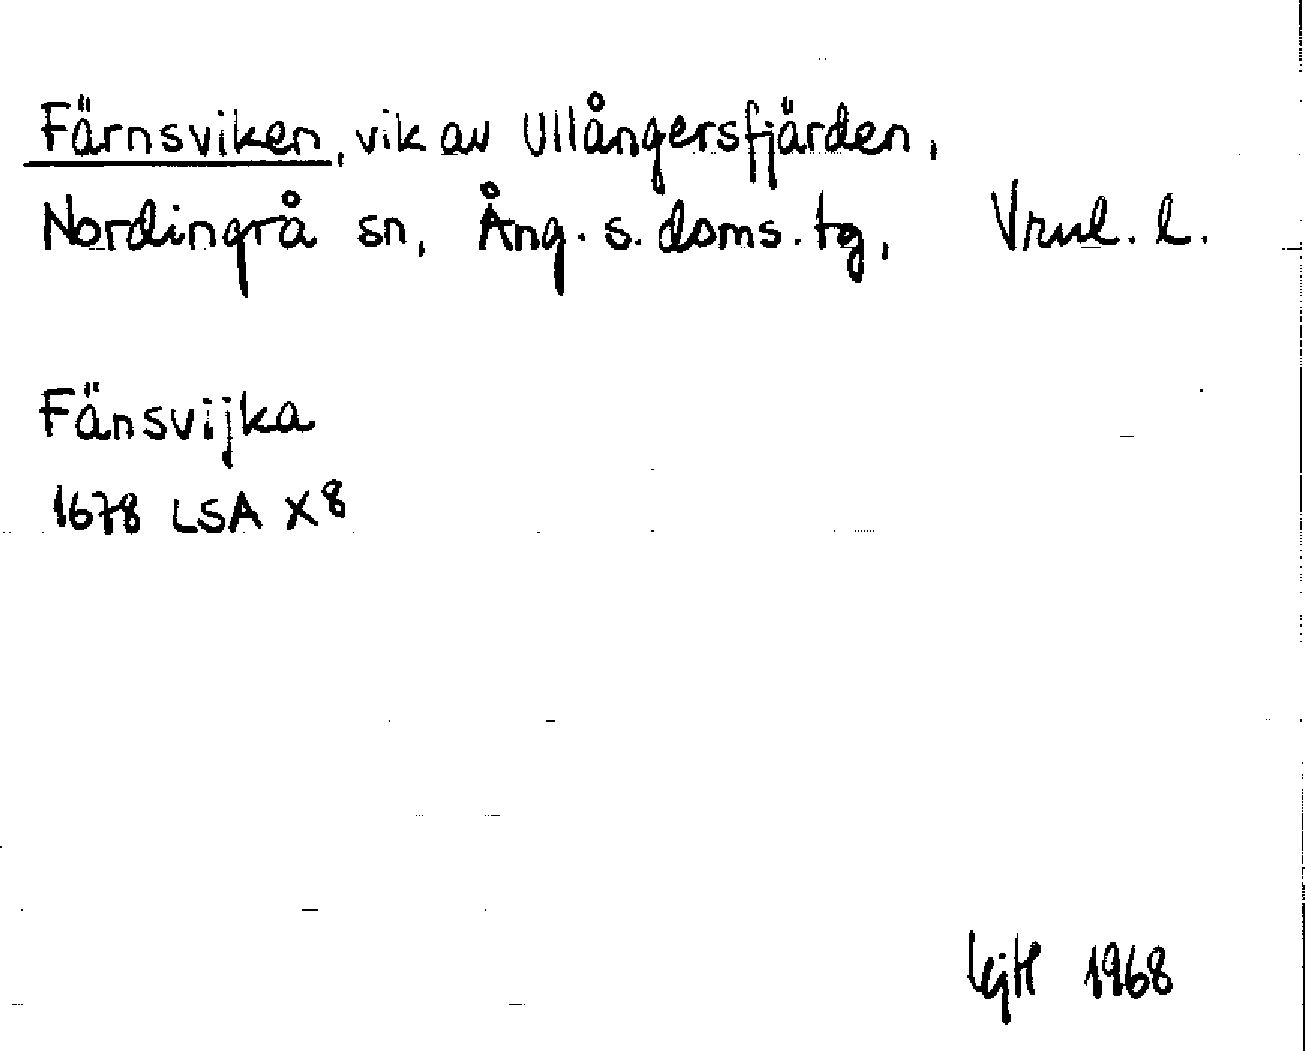 Färnsviken, vik av Ullångersfjärden,
Nordingrå sn, Ång. s. doms. tg, Vrnl. l.
Fänsvijka
1678 LSA X8
1968